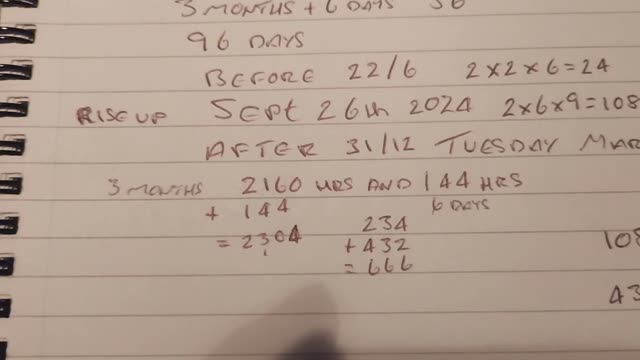 3 MONTHS + 6 DAYS 36
96 DAYS
BEFORE 22/6 2×2×6=24
RISE UP SEPT 26th 2024 2×6×9=108
AFTER 31/12 TUESDAY MAR
3 MONTHS 2160 HRS AND 144 HRS
+ 144 6 DAYS
= 2304 234
1 +432 108
=666
43